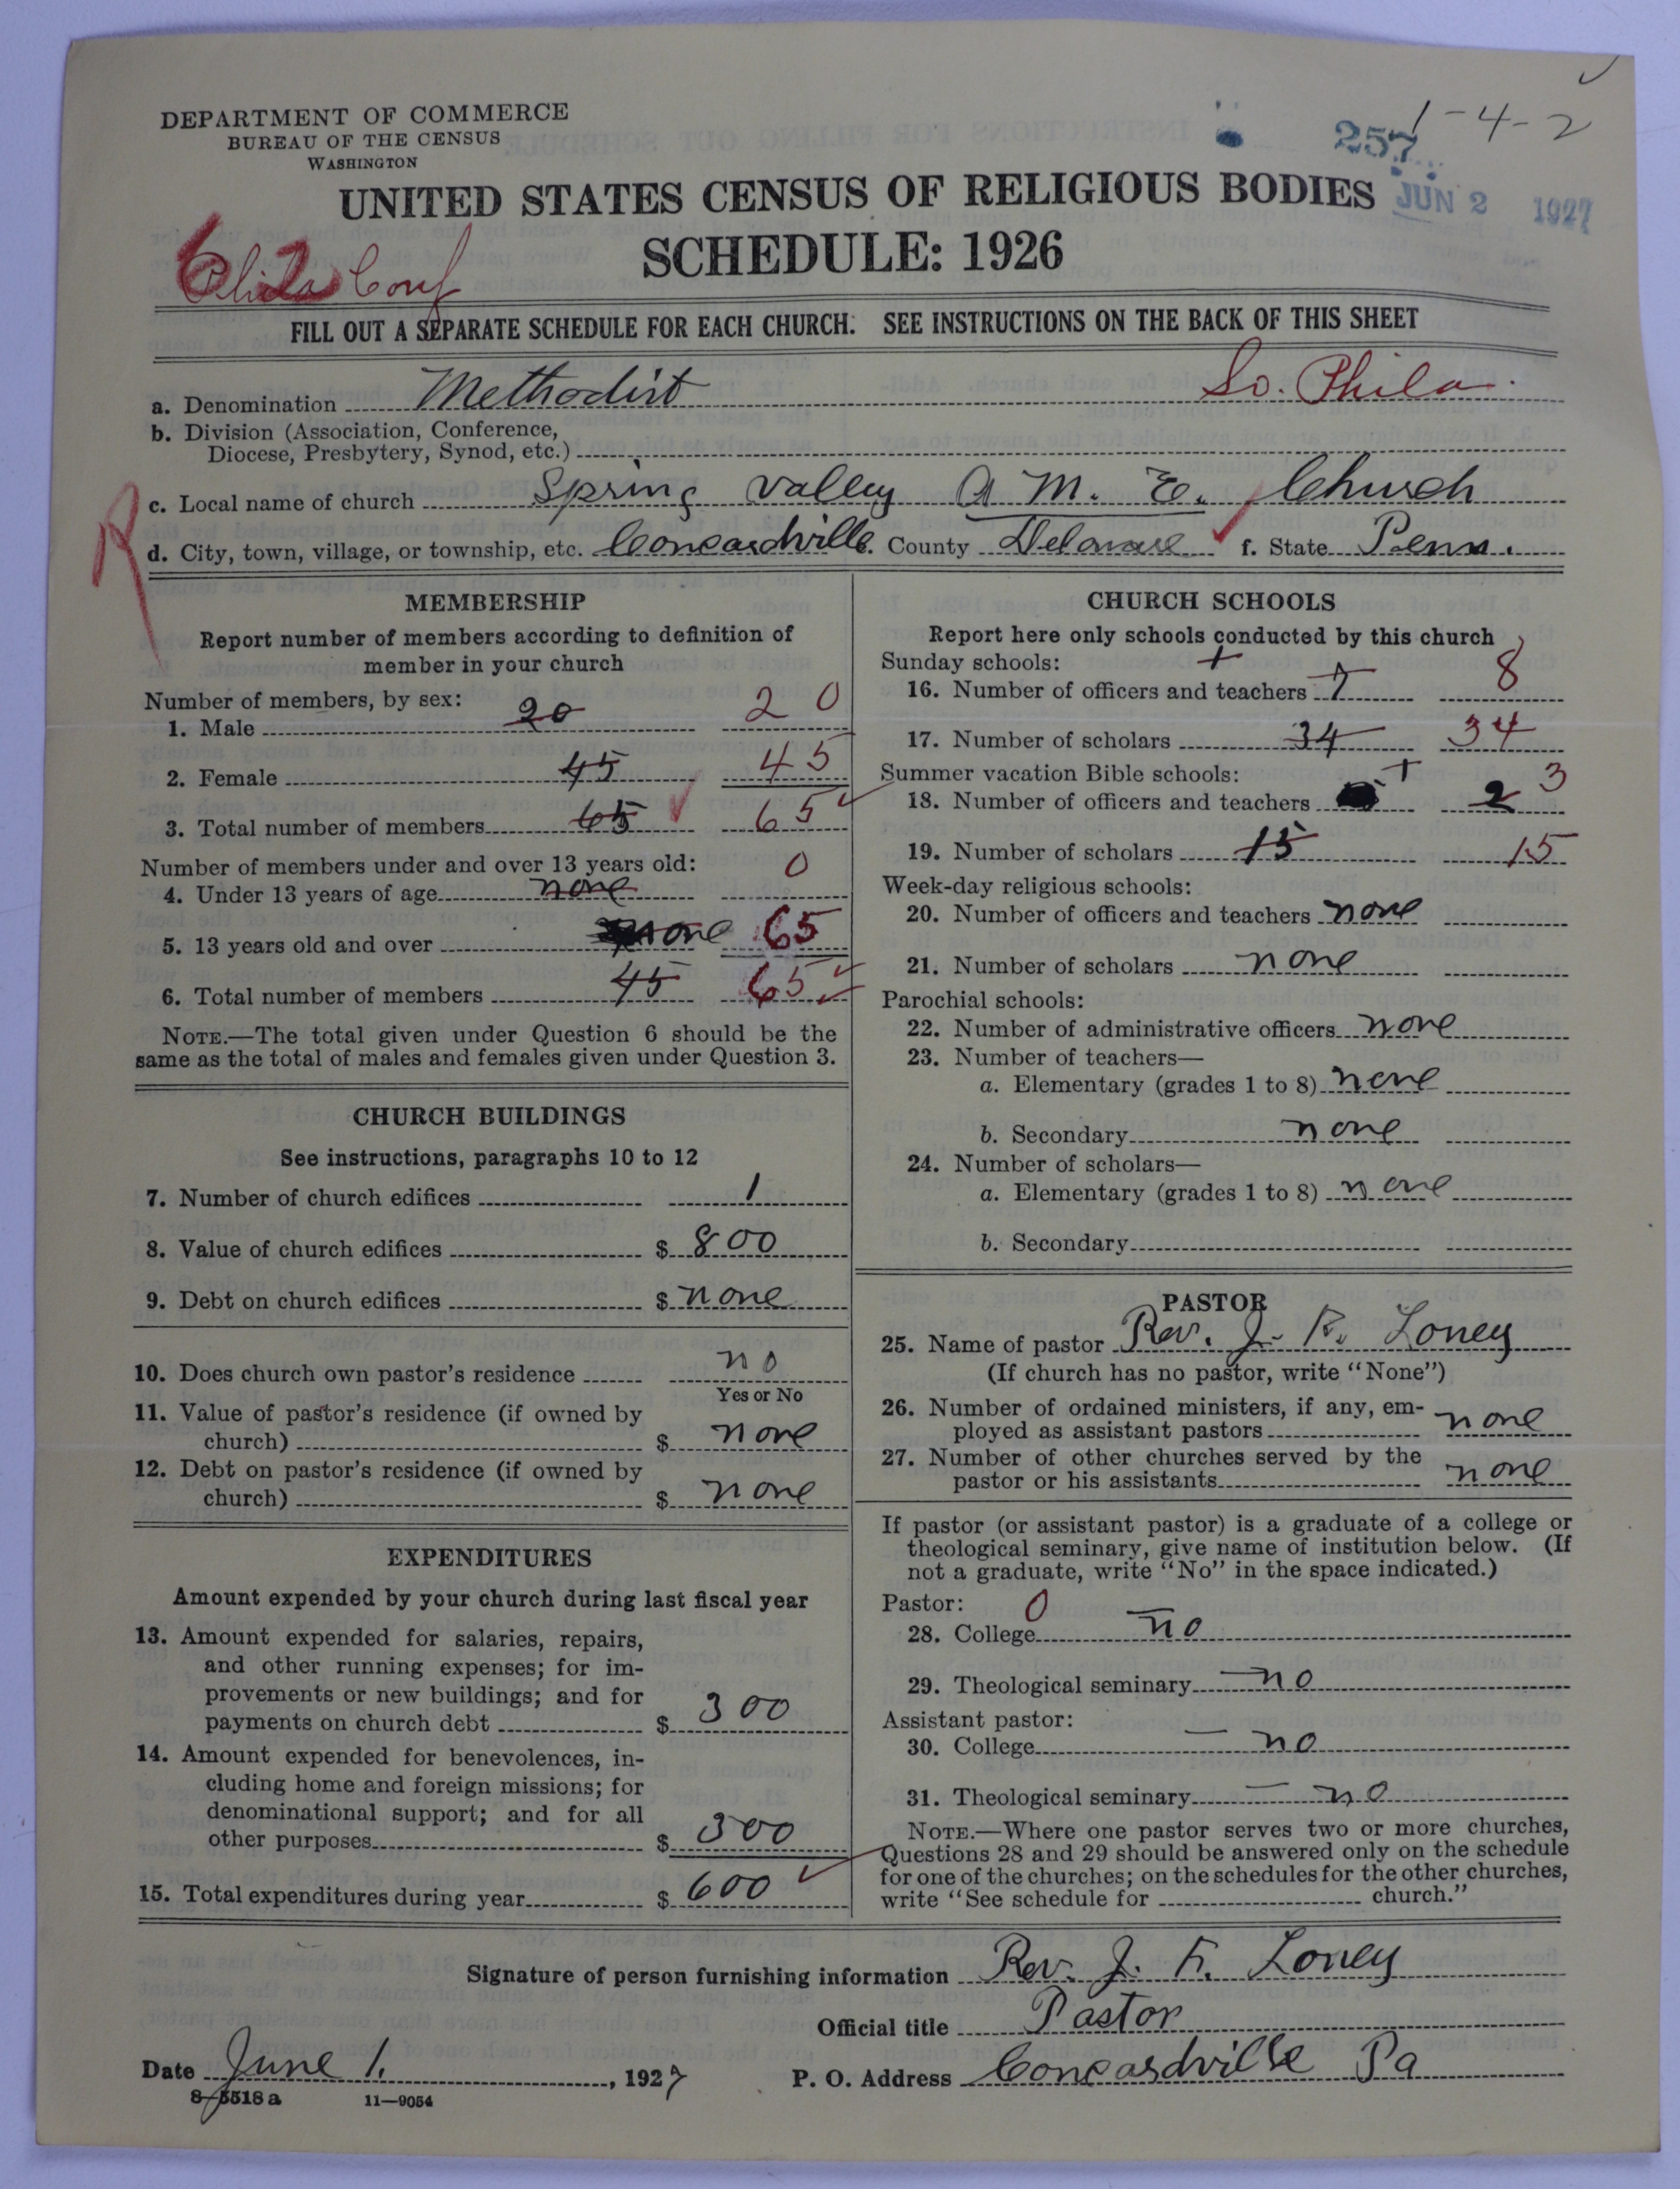 1-4-2
DEPARTMENT OF COMMERCE
BUREAU OF THE CENSUS
WASHINGTON
257
JUN 2 1927
UNITED STATES CENSUS OF RELIGIOUS BODIES
SCHEDULE: 1926
Phila Conf
FILL OUT A SEPARATE SCHEDULE FOR EACH CHURCH. SEE INSTRUCTIONS ON THE BACK OF THIS SHEET
a. Denomination Methodist So. Phila.
b. Division (Association, Conference,
Diocese, Presbytery, Synod, etc.)
c. Local name of church Spring Valley A M. E. Church
R
d. City, town, village, or township, etc. Concordville. County Delaware f. State Penn.
MEMBERSHIP
Report number of members according to definition of
member in your church
Number of members, by sex:
1. Male 20 20
2. Female 45 45
3. Total number of members 65 65
Number of members under and over 13 years old:
4. Under 13 years of age none 0
5. 13 years old and over none 65
6. Total number of members 45 65
NOTE.—The total given under Question 6 should be the
same as the total of males and females given under Question 3.
CHURCH BUILDINGS
See instructions, paragraphs 10 to 12
7. Number of church edifices 1
8. Value of church edifices $ 800
9. Debt on church edifices $ none
10. Does church own pastor's residence no
Yes or No
11. Value of pastor's residence (if owned by
church) $ none
12. Debt on pastor's residence (if owned by
church) $ none
EXPENDITURES
Amount expended by your church during last fiscal year
13. Amount expended for salaries, repairs,
and other running expenses; for im-
provements or new buildings; and for
payments on church debt $ 300
14. Amount expended for benevolences, in-
cluding home and foreign missions; for
denominational support; and for all
other purposes $ 300
15. Total expenditures during year $ 600
CHURCH SCHOOLS
Report here only schools conducted by this church
Sunday schools:
16. Number of officers and teachers 7 8
17. Number of scholars 34 34
Summer vacation Bible schools:
18. Number of officers and teachers 2 3
19. Number of scholars 15 15
Week-day religious schools:
20. Number of officers and teachers none
21. Number of scholars none
Parochial schools:
22. Number of administrative officers none
23. Number of teachers—
a. Elementary (grades 1 to 8) none
b. Secondary none
24. Number of scholars—
a. Elementary (grades 1 to 8) none
b. Secondary
PASTOR
25. Name of pastor Rev. J. F. Loney
(If church has no pastor, write "None")
26. Number of ordained ministers, if any, em-
ployed as assistant pastors none
27. Number of other churches served by the
pastor or his assistants none
If pastor (or assistant pastor) is a graduate of a college or
theological seminary, give name of institution below. (If
not a graduate, write "No" in the space indicated.)
Pastor: 0
28. College no
29. Theological seminary no
Assistant pastor:
30. College no
31. Theological seminary no
NOTE.—Where one pastor serves two or more churches,
Questions 28 and 29 should be answered only on the schedule
for one of the churches; on the schedules for the other churches,
write "See schedule for church."
Signature of person furnishing information Rev. J. F. Loney
Official title Pastor
Date June 1. , 1927 P. O. Address Concordville Pa
8-5518 a 11—9054